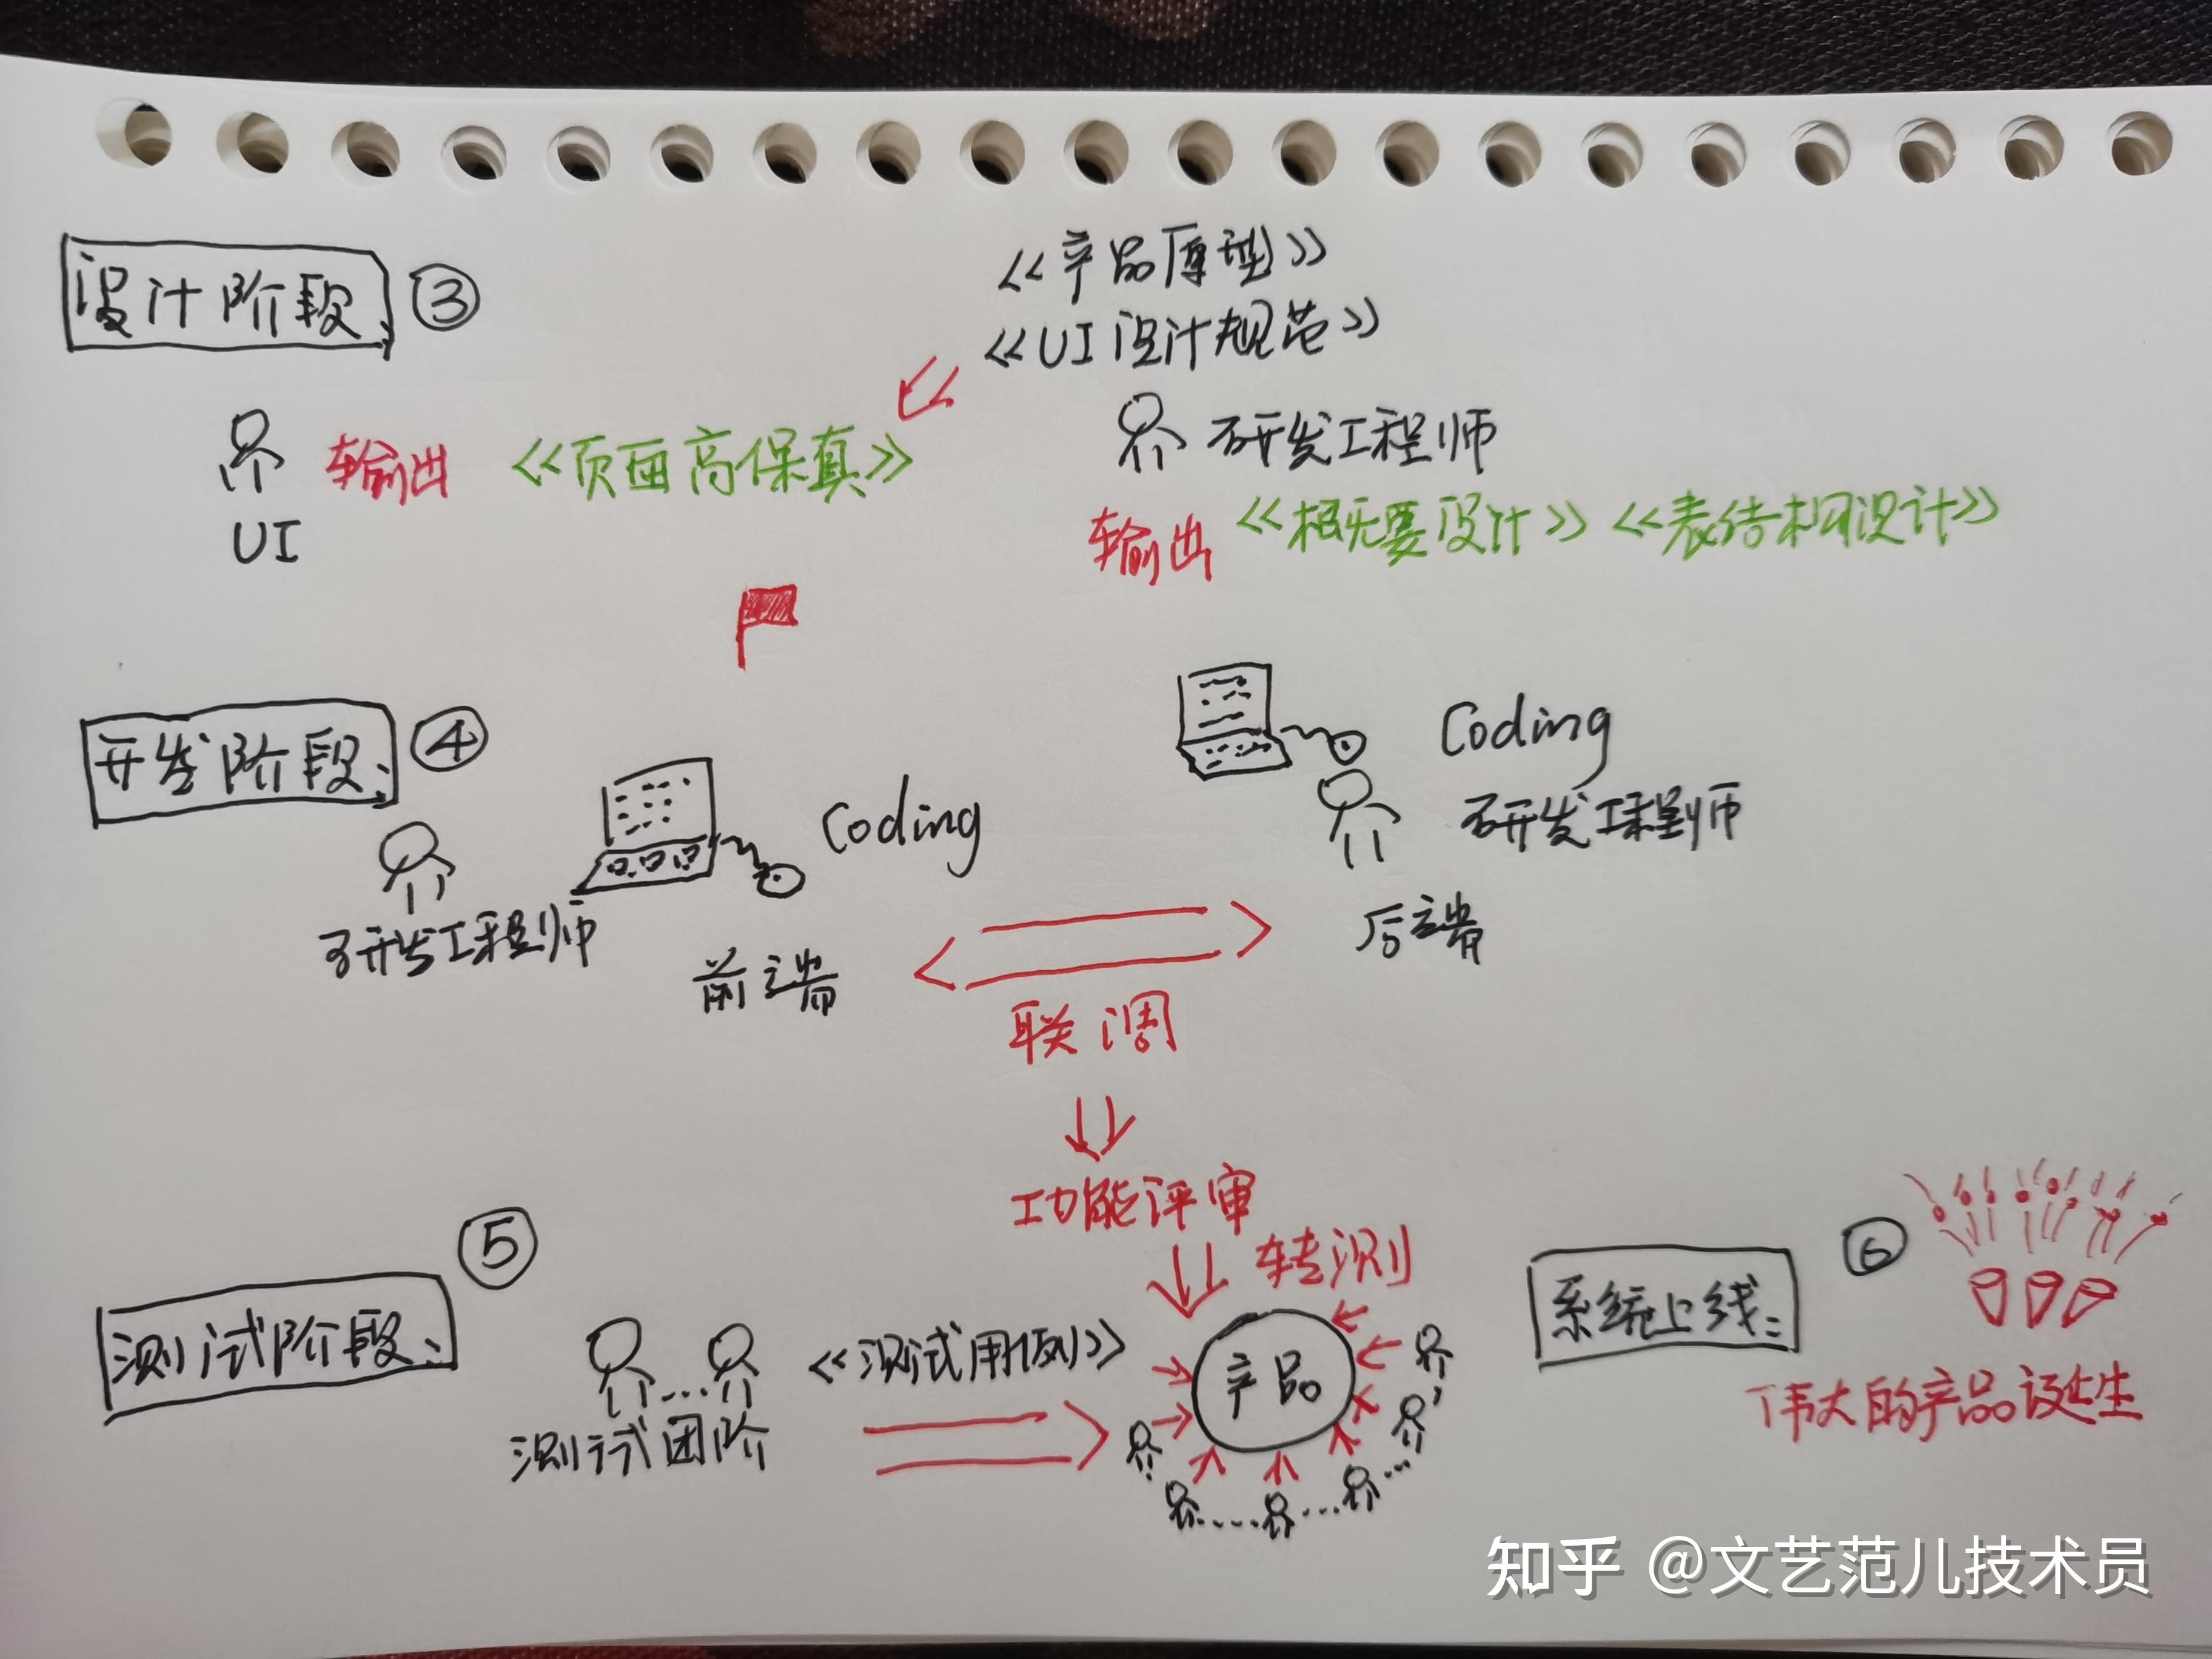 设计阶段 ③
《产品原型》
《UI设计规范》
输出 《页面高保真》
UI
研发工程师
输出 《概要设计》《表结构设计》
开发阶段: ④
Coding
研发工程师
前端
Coding
研发工程师
后端
联调
功能评审
转测
测试阶段: ⑤
《测试用例》
测试团队
产品
系统上线: ⑥
伟大的产品诞生
知乎 @文艺范儿技术员